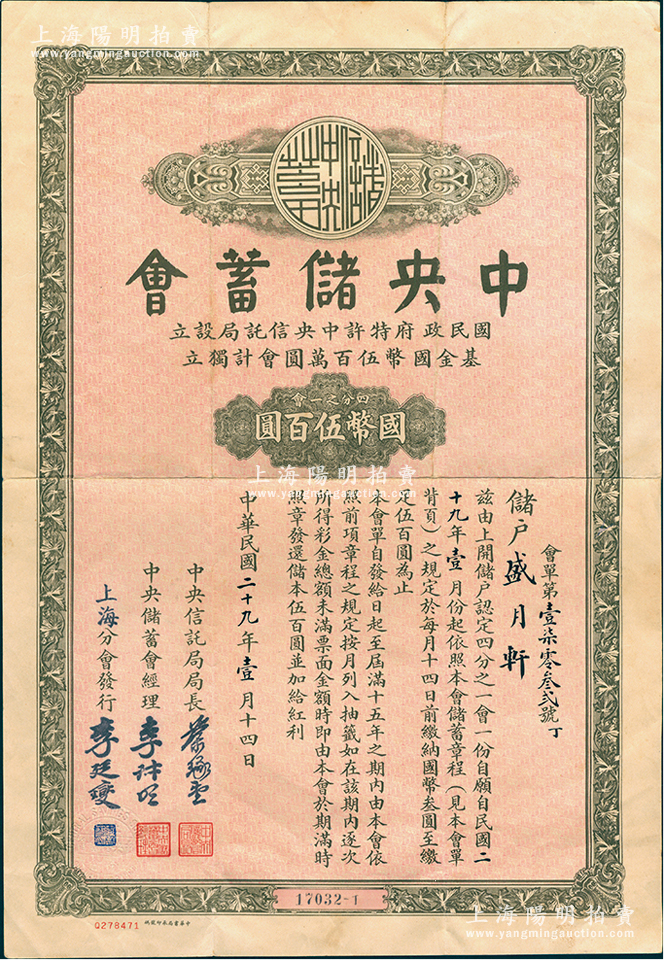 上海陽明拍賣
www.yangmingauction.com
中央儲蓄會
國民政府特許中央信託局設立
基金國幣伍百萬圓會計獨立
四分之一會
國幣伍百圓
上海陽明拍賣
www.yangmingauction.com
會單第壹柒零叁弍號丁
儲戶盛月軒
茲由上開儲戶認定四分之一會一份自願自民國二
十九年壹月份起依照本會儲蓄章程(見本會單
背頁)之規定於每月十四日前繳納國幣叁圓至繳
足伍百圓為止
本會單自發給日起至屆滿十五年之期內由本會依
照前項章程之規定按月列入抽籤如在該期內逐次
所得彩金總額未滿票面金額時即由本會於期滿時
照章發還儲本伍百圓並加給紅利
中華民國二十九年壹月十四日
中央信託局局長
中央儲蓄會經理
上海分會發行 李廷燮
17032-1
Q278471
中華書局承印
上海陽明拍賣
www.yangmingauction.com